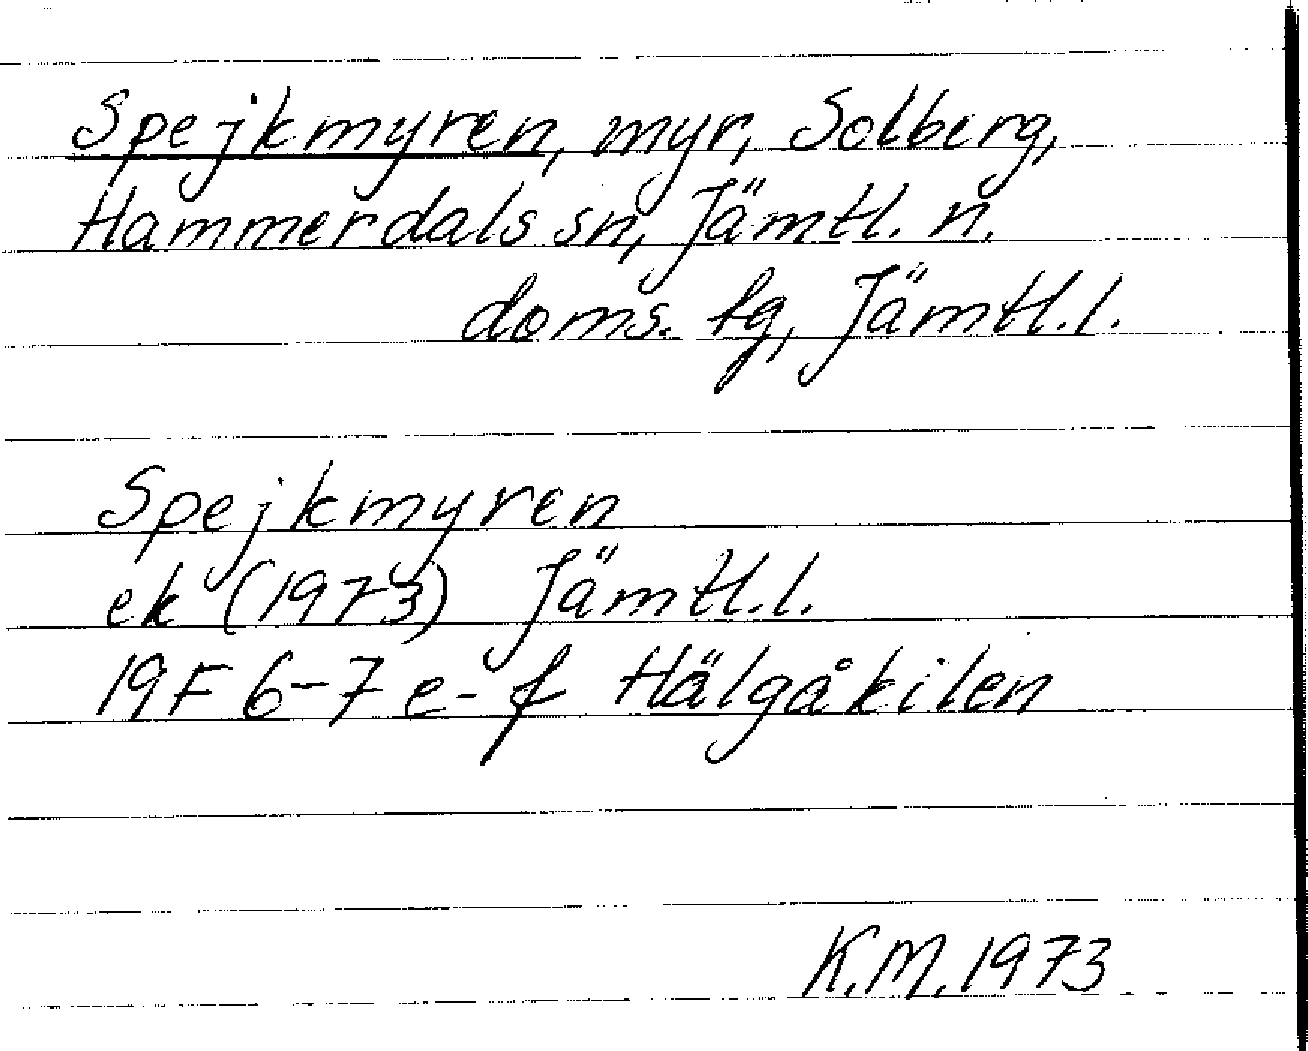 Spejkmyren, myr, Solberg,
Hammerdals sn, Jämtl. n.
doms. tg, Jämtl.l.
Spejkmyren
ek (1973) Jämtl.l.
19F 6-7 e-f Hälgåkilen
K.M. 1973